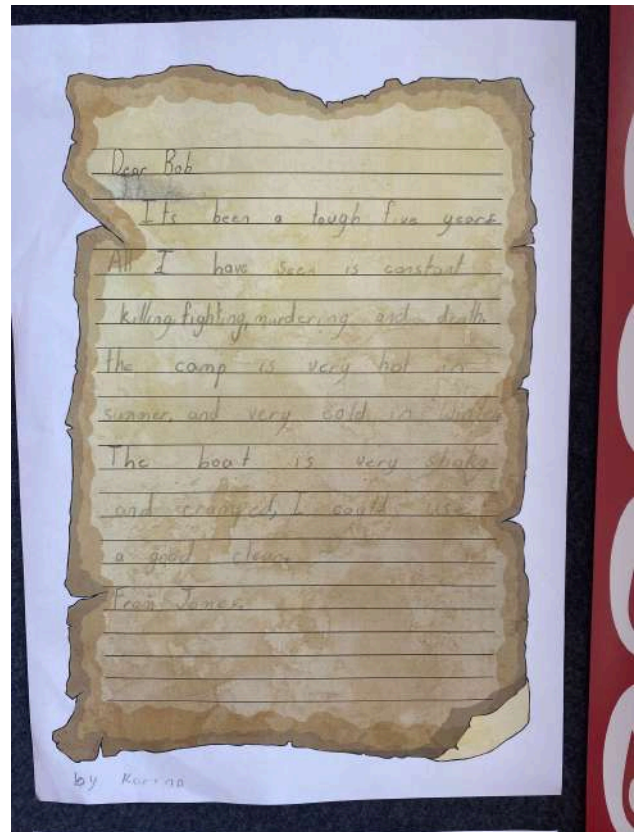 Dear Bob
Its been a tough five years
All I have seen is constant
killing, fighting, murdering and death.
the camp is very hot in
summer, and very cold in winter
The boat is very shaky
and cramped, I could use
a good clean.
From James.
by Karina